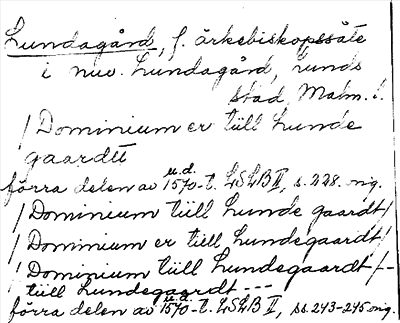 Lundagård, f. ärkebiskopssäte
i nuv. Lundagård, Lunds
stad, Malm. l.
/Dominium er tiill Lunde
gaardtt
förra delen av u.d. 1570-t. LSLB II, s. 228. orig.
/Dominium tiill Lunde gaardt/
/Dominium er tiell Lundegaardt/
/Dominium tiill Lundegaardt/-
tiill Lundegaardt ---
förra delen av u.d. 1570-t. LSLB II, ss. 243-245 orig.